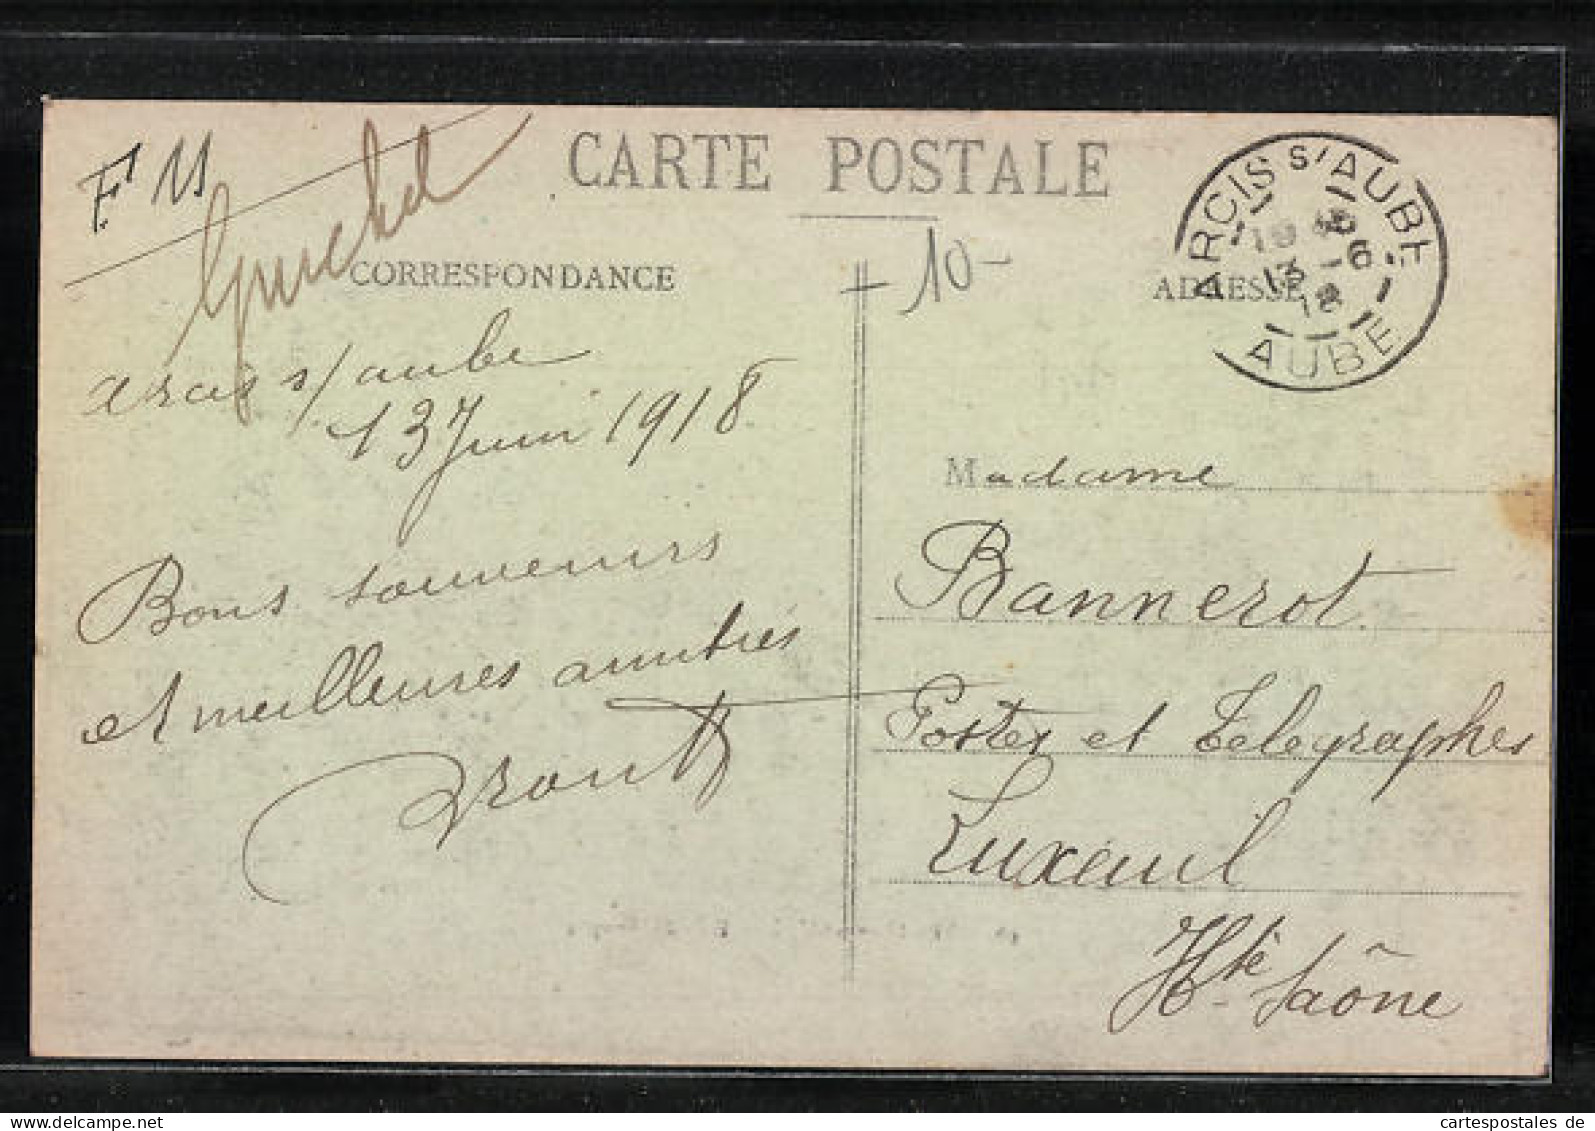 F M
CARTE POSTALE
CORRESPONDANCE
10-
ADRESSE
ARCIS S/ AUBE
13 - 6
18
AUBE
Arcis s/ aube
13 Juin 1918
Bons souvenirs
et meilleures amitiés
Madame
Bannerot
Postes et Télégraphes
Luxeuil
Hte Saône
cartespostales de